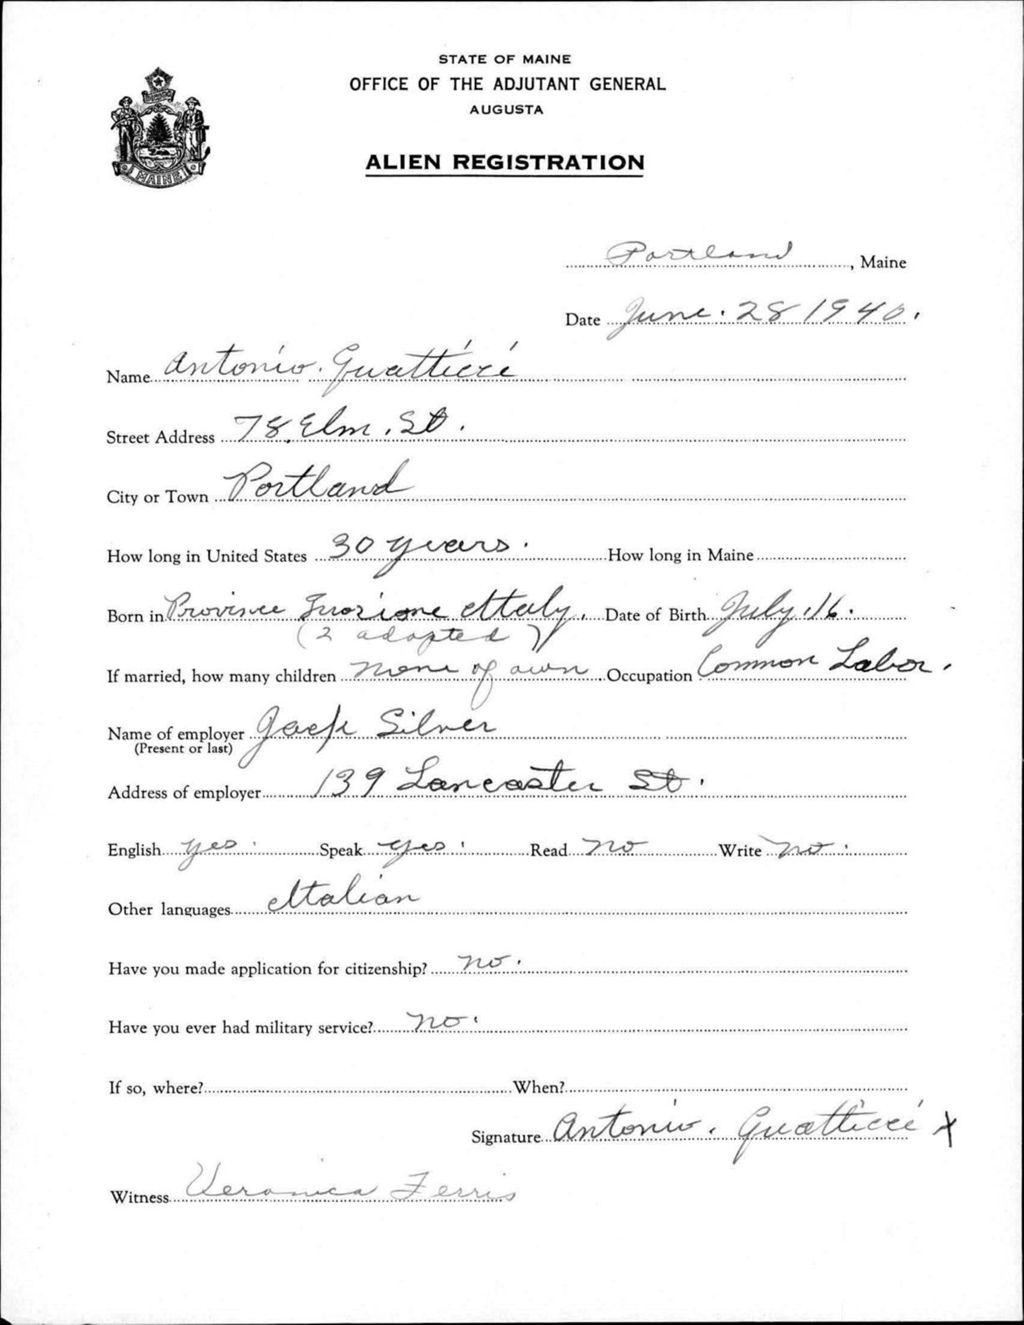 STATE OF MAINE
OFFICE OF THE ADJUTANT GENERAL
AUGUSTA
ALIEN REGISTRATION
MAINE
Portland, Maine
Date June. 28 1940.
Name Antonio. Guatticci
Street Address 78, Elm, St.
City or Town Portland
How long in United States 30 years. How long in Maine
Born in Province Italy. Date of Birth July, 16.
(2 adopted)
If married, how many children none of own Occupation Common Labor.
Name of employer Jack Silver
(Present or last)
Address of employer 139 Lancaster St.
English yes. Speak yes. Read no Write no.
Other languages Italian
Have you made application for citizenship? no.
Have you ever had military service? no.
If so, where? When?
Signature Antonio. Guatticci X
Witness Veronica Ferris